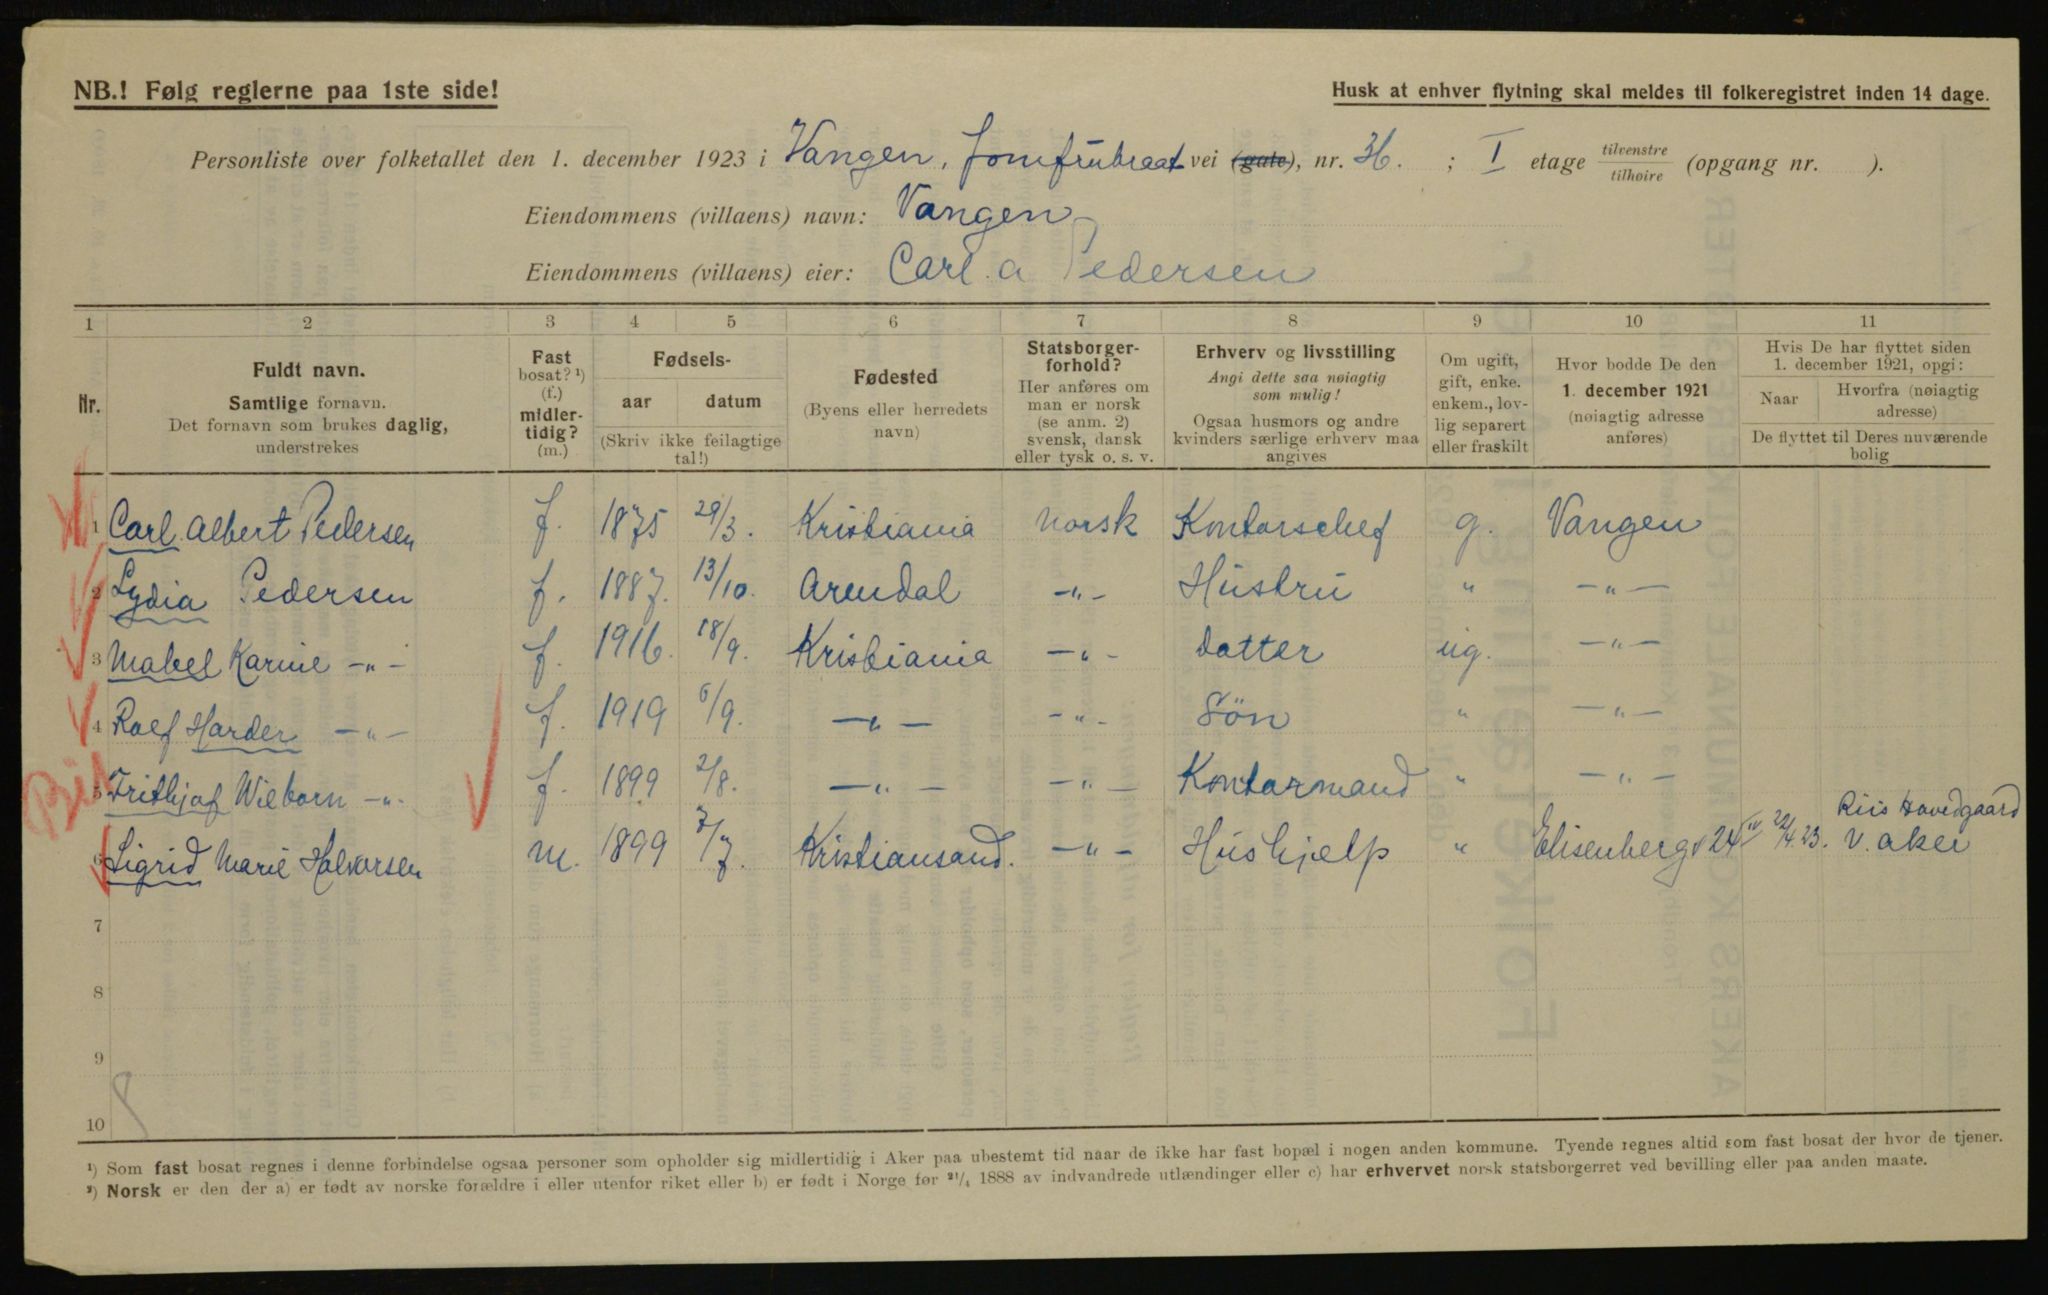 NB.! Følg reglerne paa 1ste side!
Husk at enhver flytning skal meldes til folkeregistret inden 14 dage.
Personliste over folketallet den 1. december 1923 i Vangen, Jomfrubraatvei (gate), nr. 36. ; I etage tilvenstre tilhøire (opgang nr. ).
Eiendommens (villaens) navn: Vangen
Eiendommens (villaens) eier: Carl. A Pedersen
1 2 3 4 5 6 7 8 9 10 11
Nr.
Fuldt navn.
Samtlige fornavn.
Det fornavn som brukes daglig,
understrekes
Fast
bosat? ¹)
(f.)
midler-
tidig?
(m.)
Fødsels-
aar datum
(Skriv ikke feilagtige
tal!)
Fødested
(Byens eller herredets
navn)
Statsborger-
forhold?
Her anføres om
man er norsk
(se anm. 2)
svensk, dansk
eller tysk o. s. v.
Erhverv og livsstilling
Angi dette saa nøiagtig
som mulig!
Ogsaa husmors og andre
kvinders særlige erhverv maa
angives
Om ugift,
gift, enke.
enkem., lov-
lig separert
eller fraskilt
Hvor bodde De den
1. december 1921
(nøiagtig adresse
anføres)
Hvis De har flyttet siden
1. december 1921, opgi:
Naar Hvorfra (nøiagtig
adresse)
De flyttet til Deres nuværende
bolig
1 Carl Albert Pedersen f. 1875 29/3. Kristiania Norsk Kontorschef g. Vangen
2 Lydia Pedersen f. 1887. 13/10. Arendal -„- Hustru „ -„-
3 Mabel Karine -„- f. 1916. 18/9. Kristiania -„- Datter ug. -„-
4 Rolf Harder -„- f. 1919 6/9. -„- -„- Sön „ -„-
5 Frithjof Wieborn -„- f. 1899 2/8. -„- -„- Kontormand „ -„-
6 Sigrid Marie Halvorsen m. 1899 7/7. Kristiansand. -„- Hushjelp „ Elisenbergv 24 IV 22/4.23. Riis Hovedgaard
V. Aker
7
8
9
10
¹) Som fast bosat regnes i denne forbindelse ogsaa personer som opholder sig midlertidig i Aker paa ubestemt tid naar de ikke har fast bopæl i nogen anden kommune. Tyende regnes altid som fast bosat der hvor de tjener.
²) Norsk er den der a) er født av norske forældre i eller utenfor riket eller b) er født i Norge før ²¹/₄ 1888 av indvandrede utlændinger eller c) har erhvervet norsk statsborgerret ved bevilling eller paa anden maate.